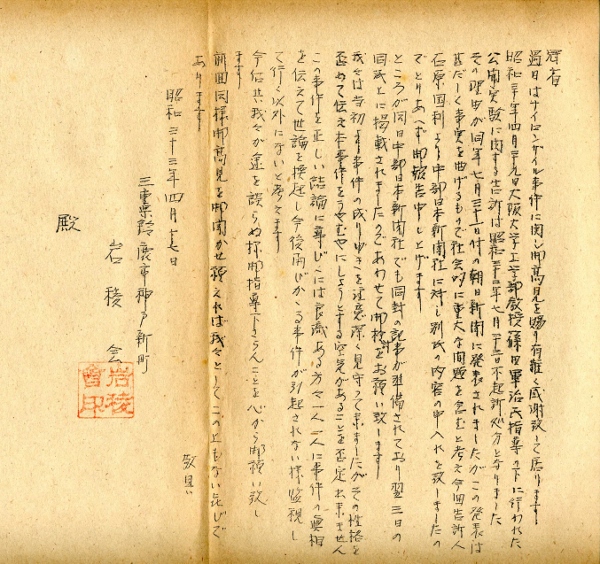 冠省
過日はナイロンザイル事件に関し御高見を賜り有難く感謝致して居ります
昭和三十年四月二十九日大阪大学工学部教授篠田軍治氏指導の下に行われた
公開実験に関する告訴は昭和三十二年七月二十三日不起訴処分となりました
その理由が同年七月三十一日付の朝日新聞に発表されましたがこの発表は
甚だしく事実を曲げるもので社会的に重大な問題を含むと考え今回告訴人
石原国利より中部日本新聞社に対し別紙の内容の申入れを致しましたの
でとりあへず御報告申し上げます
ところが同日中部日本新聞社でも同封の記事が準備されており翌三日の
同紙上に掲載されましたのであわせて御検討をお願い致します
我々は当初より事件の成りゆきを注意深く見守って来ましたがその性格を
歪めて伝え本事件をうやむやにしようとする空気があることを否定出来ません
この事件を正しい結論に導びくには良識ある方々一人一人に事件の真相
を伝えて世論を換起し今後同じかゝる事件が引起されない様監視し
て行く以外にないと考えます
今后共我々が途を誤らぬ様御指導下さらんことを心から御願い致し
ます
前回同様御高見を御聞かせ頂えれば我々としてこの上もない喜びで
あります
敬具
昭和三十三年四月十七日
三重県鈴鹿市神戸新町
岩稜会
岩稜會印
殿